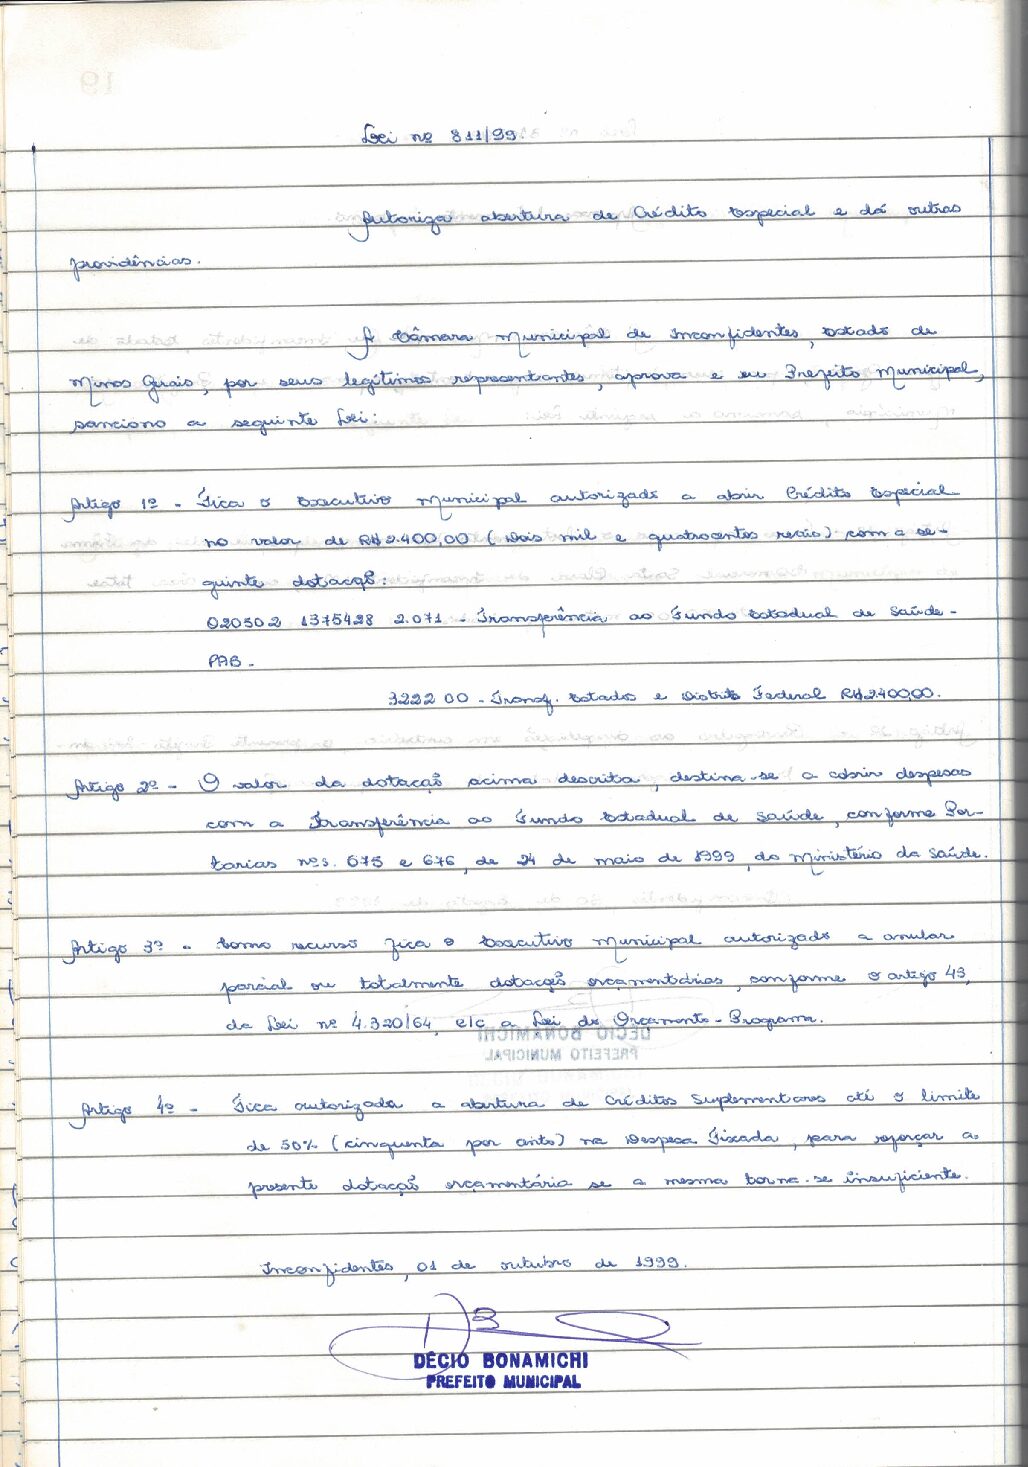 Lei nº 811/99
Autoriza abertura de Crédito Especial e dá outras
providências.
A Câmara Municipal de Inconfidentes, Estado de
Minas Gerais, por seus legítimos representantes, aprova e eu Prefeito Municipal,
sanciono a seguinte Lei:
Artigo 1º - Fica o Executivo Municipal autorizado a abrir Crédito Especial
no valor de R$ 2.400,00 (Dois mil e quatrocentos reais) com a se-
guinte dotação:
020502 1375428 2.071 - Transferência ao Fundo Estadual de Saúde -
PAB -
3222 00 - Transf. Estados e Distrito Federal R$ 2.400,00.
Artigo 2º - O valor da dotação acima descrita, destina-se a cobrir despesas
com a Transferência ao Fundo Estadual de Saúde, conforme Por-
tarias nºs. 675 e 676, de 24 de maio de 1999, do Ministério da Saúde.
Artigo 3º - Como recurso fica o Executivo Municipal autorizado a anular
parcial ou totalmente dotação orçamentárias, conforme o artigo 43,
da Lei nº 4.320/64, c/c a Lei de Orçamento-Programa.
Artigo 4º - Fica autorizada a abertura de Créditos Suplementares até o limite
de 50% (cinquenta por cento) na Despesa Fixada, para reforçar a
presente dotação orçamentária se a mesma torna-se insuficiente.
Inconfidentes, 01 de outubro de 1999.
DÉCIO BONAMICHI
PREFEITO MUNICIPAL